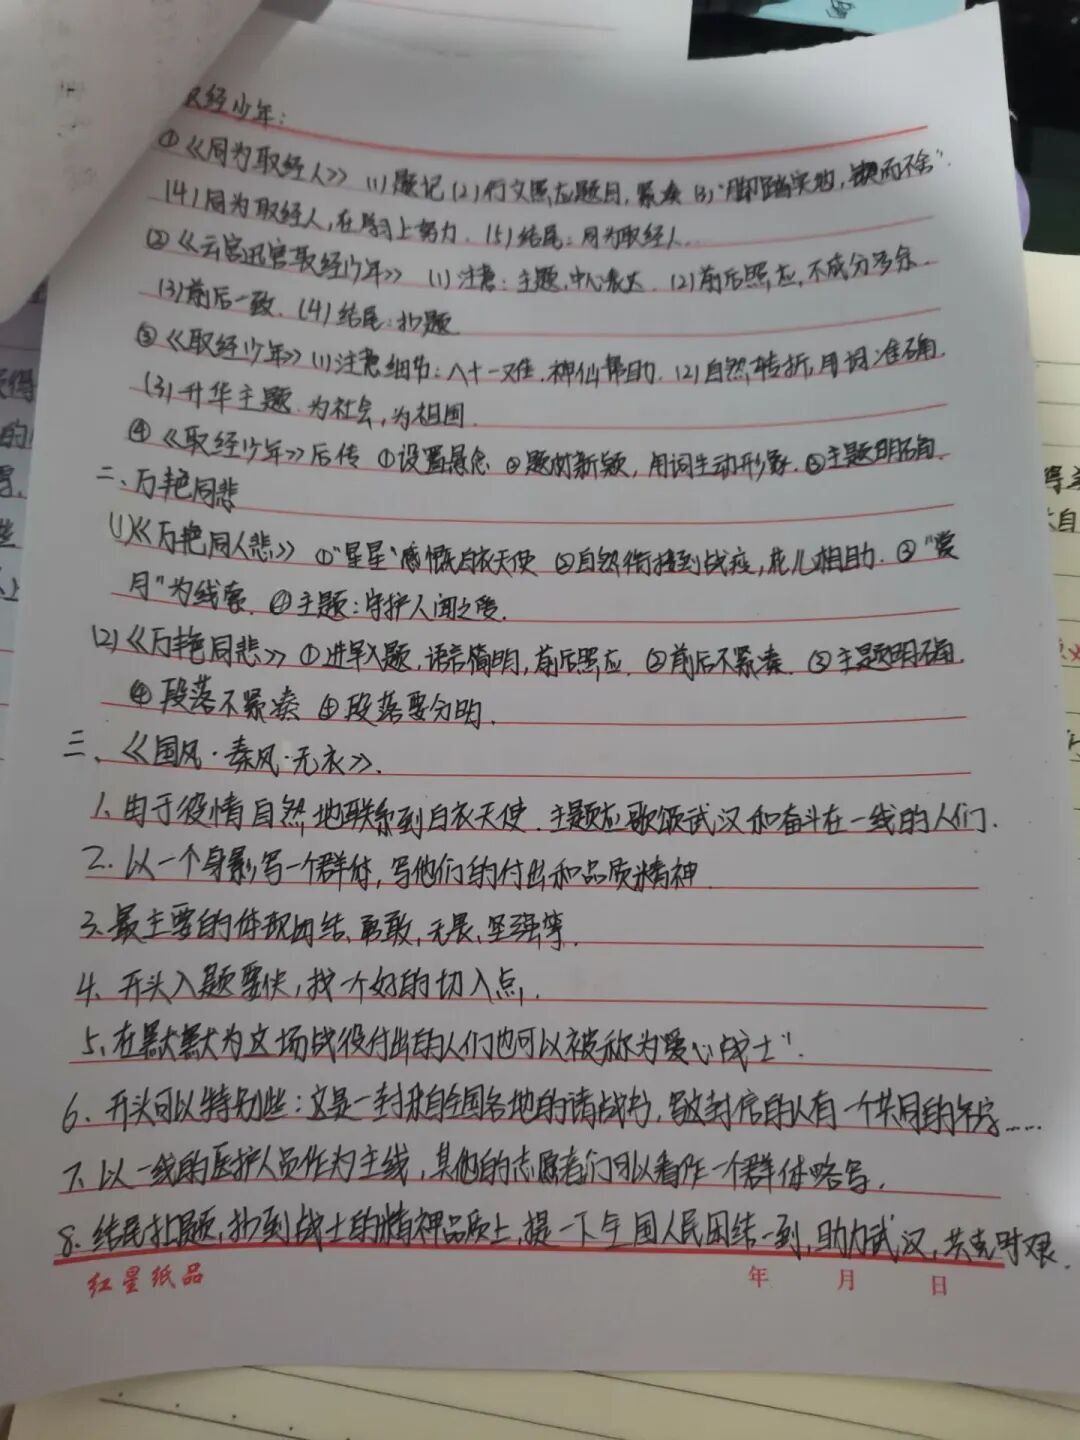 取经少年：
①《同为取经人》 (1)题记 (2)行文照应题目，紧凑 (3)“脚踏实地，锲而不舍”.
(4)同为取经人，在学习上努力. (5)结尾：同为取经人.
②《云宫迅音取经少年》 (1)注意：主题，中心表达. (2)前后照应，不成分多余.
(3)前后一致. (4)结尾：扣题
③《取经少年》(1)注意细节：八十一难.神仙帮助. (2)自然转折，用词准确.
(3)升华主题.为社会，为祖国.
④《取经少年》后传 ①设置悬念 ②题材新颖，用词生动形象.③主题明确.
二、万艳同悲
(1)《万艳同人悲》 ①“星星”感慨白衣天使 ②自然衔接到战疫，花儿相助. ③“赏
月”为线索. ④主题：守护人间之爱.
(2)《万艳同悲》 ①进早入题，语言简明，前后照应. ②前后不紧凑. ③主题明确.
④段落不紧凑 ④段落要分明.
三、《国风·秦风·无衣》.
1.由于疫情自然地联系到白衣天使.主题应歌颂武汉和奋斗在一线的人们.
2.以一个身影，写一个群体，写他们的付出和品质精神.
3.最主要的体现团结、勇敢，无畏，坚强等.
4.开头入题要快，找一个好的切入点.
5、在默默为这场战役付出的人们也可以被称为“爱心战士”.
6.开头可以特别些：这是一封来自全国各地的请战书，写这封信的人有一个共同的名字......
7.以一线的医护人员作为主线，其他的志愿者们可以看作一个群体略写.
8.结尾扣题，扣到战士的精神品质上，提一下全国人民团结一到，助力武汉，共克时艰.
红星纸品 年 月 日